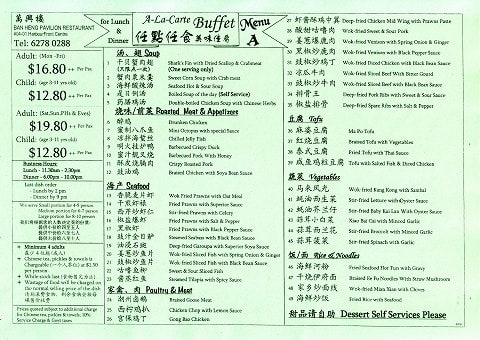 萬興樓
BAN HENG PAVILION RESTAURANT
#04-01 HarbourFront Centre
Tel: 6278 0288
for Lunch
&
Dinner
A-La-Carte Buffet
任點任食 美味佳肴
Menu
A
Adult: (Mon -Fri)
$16.80 ++ Per Pax
Child: (age 3-11 yrs old)
$12.80 ++ Per Pax
Adult: (Sat,Sun,PH's & Eves)
$19.80 ++ Per Pax
Child: (age 3-11 yrs old)
$12.80 ++ Per Pax
Business Hours
Lunch - 11.30am - 2.30pm
Dinner - 6.00pm - 10.00pm
Last dish order
- Lunch by 2 pm
- Dinner by 9 pm
We serve Small portion for 4-5 person
Medium portion for 6-7 person
Large portion for 8-10 person
Minimum 4 adults
Chinese tea, pickles & towels is
Chargeable
at $2.50
per person
While stock last
Wastage of food will be charged on
the normal selling price of the dish
Prices quoted subject to additional charge
for Chinese tea, pickles & towels, 10%
Service Charge & Govt taxes
汤、翅 Soup
1 干贝蟹肉翅 Shark's Fin with Dried Scallop & Crabmeat
(One serving only)
2 蟹肉粟米羹 Sweet Corn Soup with Crab meat
3 海鲜酸辣汤 Seafood Hot & Sour Soup
4 是日例汤 Boiled Soup of the day (Self Service)
5 药膳鸡汤 Double-boiled Chicken Soup with Chinese Herbs
烧味/前菜 Roasted Meat & Appetizers
6 醉鸡 Drunken Chicken
7 蜜制八爪鱼 Mini Octopus with special Sauce
8 冰拼海蜇丝 Chilled Jelly Fish
9 明火挂炉鸭 Barbecued Crispy Duck
10 蜜汁靓叉烧 Barbecued Pork With Honey
11 脆皮烧腩肉 Crispy Roasted Pork
12 豉油鸡 Braised Chicken with Soya Bean Sauce
海产 Seafood
13 Wok-Fried Prawns with Oat Meal
14 干煎虾碌 Fried Prawns with Superior Sauce
15 西芹炒虾仁 Stir-Fried Prawn with Celery
16 椒盐虾 Fried Prawns with Salt & Pepper
17 黑椒虾 Fried Prawns with Black Pepper Sauce
18 豉汁蒸目鲈 Steamed Seabass with Black Bean Sauce
19 油浸石斑 Deep-fried Garoupa with Superior Soya Sauce
20 姜葱炒鱼片 Wok-fried Sliced Fish with Spring Onion & Ginger
21 豉椒炒鱼片 Wok-fried Sliced Fish with Black Bean Sauce
22 咕噜鱼柳 Sweet & Sour Sliced Fish
23 酱蒸金鱼 Steamed Tilapia with Spicy Sauce
家禽、肉 Poultry & Meat
24 潮州卤鹅 Braised Goose Meat
25 西柠鸡扒 Chicken Chop with Lemon Sauce
26 宫保鸡丁 Gong Bao Chicken
27 虾酱酥鸡中翼 Deep-fried Chicken Mid Wing with Prawns Paste
28 酸甜咕噜肉 Wok-fried Sweet & Sour Pork
29 姜葱爆鹿肉 Wok-fried Venison with Spring Onion & Ginger
30 黑椒炒鹿肉 Wok-fried Venison with Black Pepper Sauce
31 豉椒炒鸡丁 Wok-fried Diced Chicken with Black Bean Sauce
32 凉瓜牛肉 Wok-fried Sliced Beef With Bitter Gourd
33 豉椒炒牛肉 Wok-fried Sliced Beef with Black Bean Sauce
34 排骨王 Deep-fried Pork Ribs with Sweet & Sour Sauce
35 椒盐排骨 Deep-fried Spare Ribs with Salt & Pepper
豆腐 Tofu
36 麻婆豆腐 Ma Po Tofu
37 红烧豆腐 Braised Tofu with Vegetables
38 泰式豆腐 Fried Tofu with Thai Sauce
39 咸鱼鸡粒豆腐 Tofu with Salted Fish & Diced Chicken
蔬菜 Vegetables
40 马来风光 Wok-fried Kang Kong with Sambal
41 蚝油西生菜 Stir-fried Lettuce with Oyster Sauce
42 蚝油芥兰仔 Stir-fried Baby Kai Lan With Oyster Sauce
43 蒜茸小白菜 Xiao Bai Cai with Minced Garlic
44 蒜茸西兰花 Stir-fried Broccoli with Minced Garlic
45 蒜茸菠菜 Stir-fried Spinach with Garlic
饭/面 Rice & Noodles
46 海鲜河粉 Fried Seafood Hor Fun with Gravy
47 干烧伊府面 Braised Ee Fu Noodles With Straw Mushroom
48 家乡炒面线 Wok-fried Mian Xian with Chives
49 海鲜炒饭 Fried Rice with Seafood
甜品请自助 Dessert Self Services Please